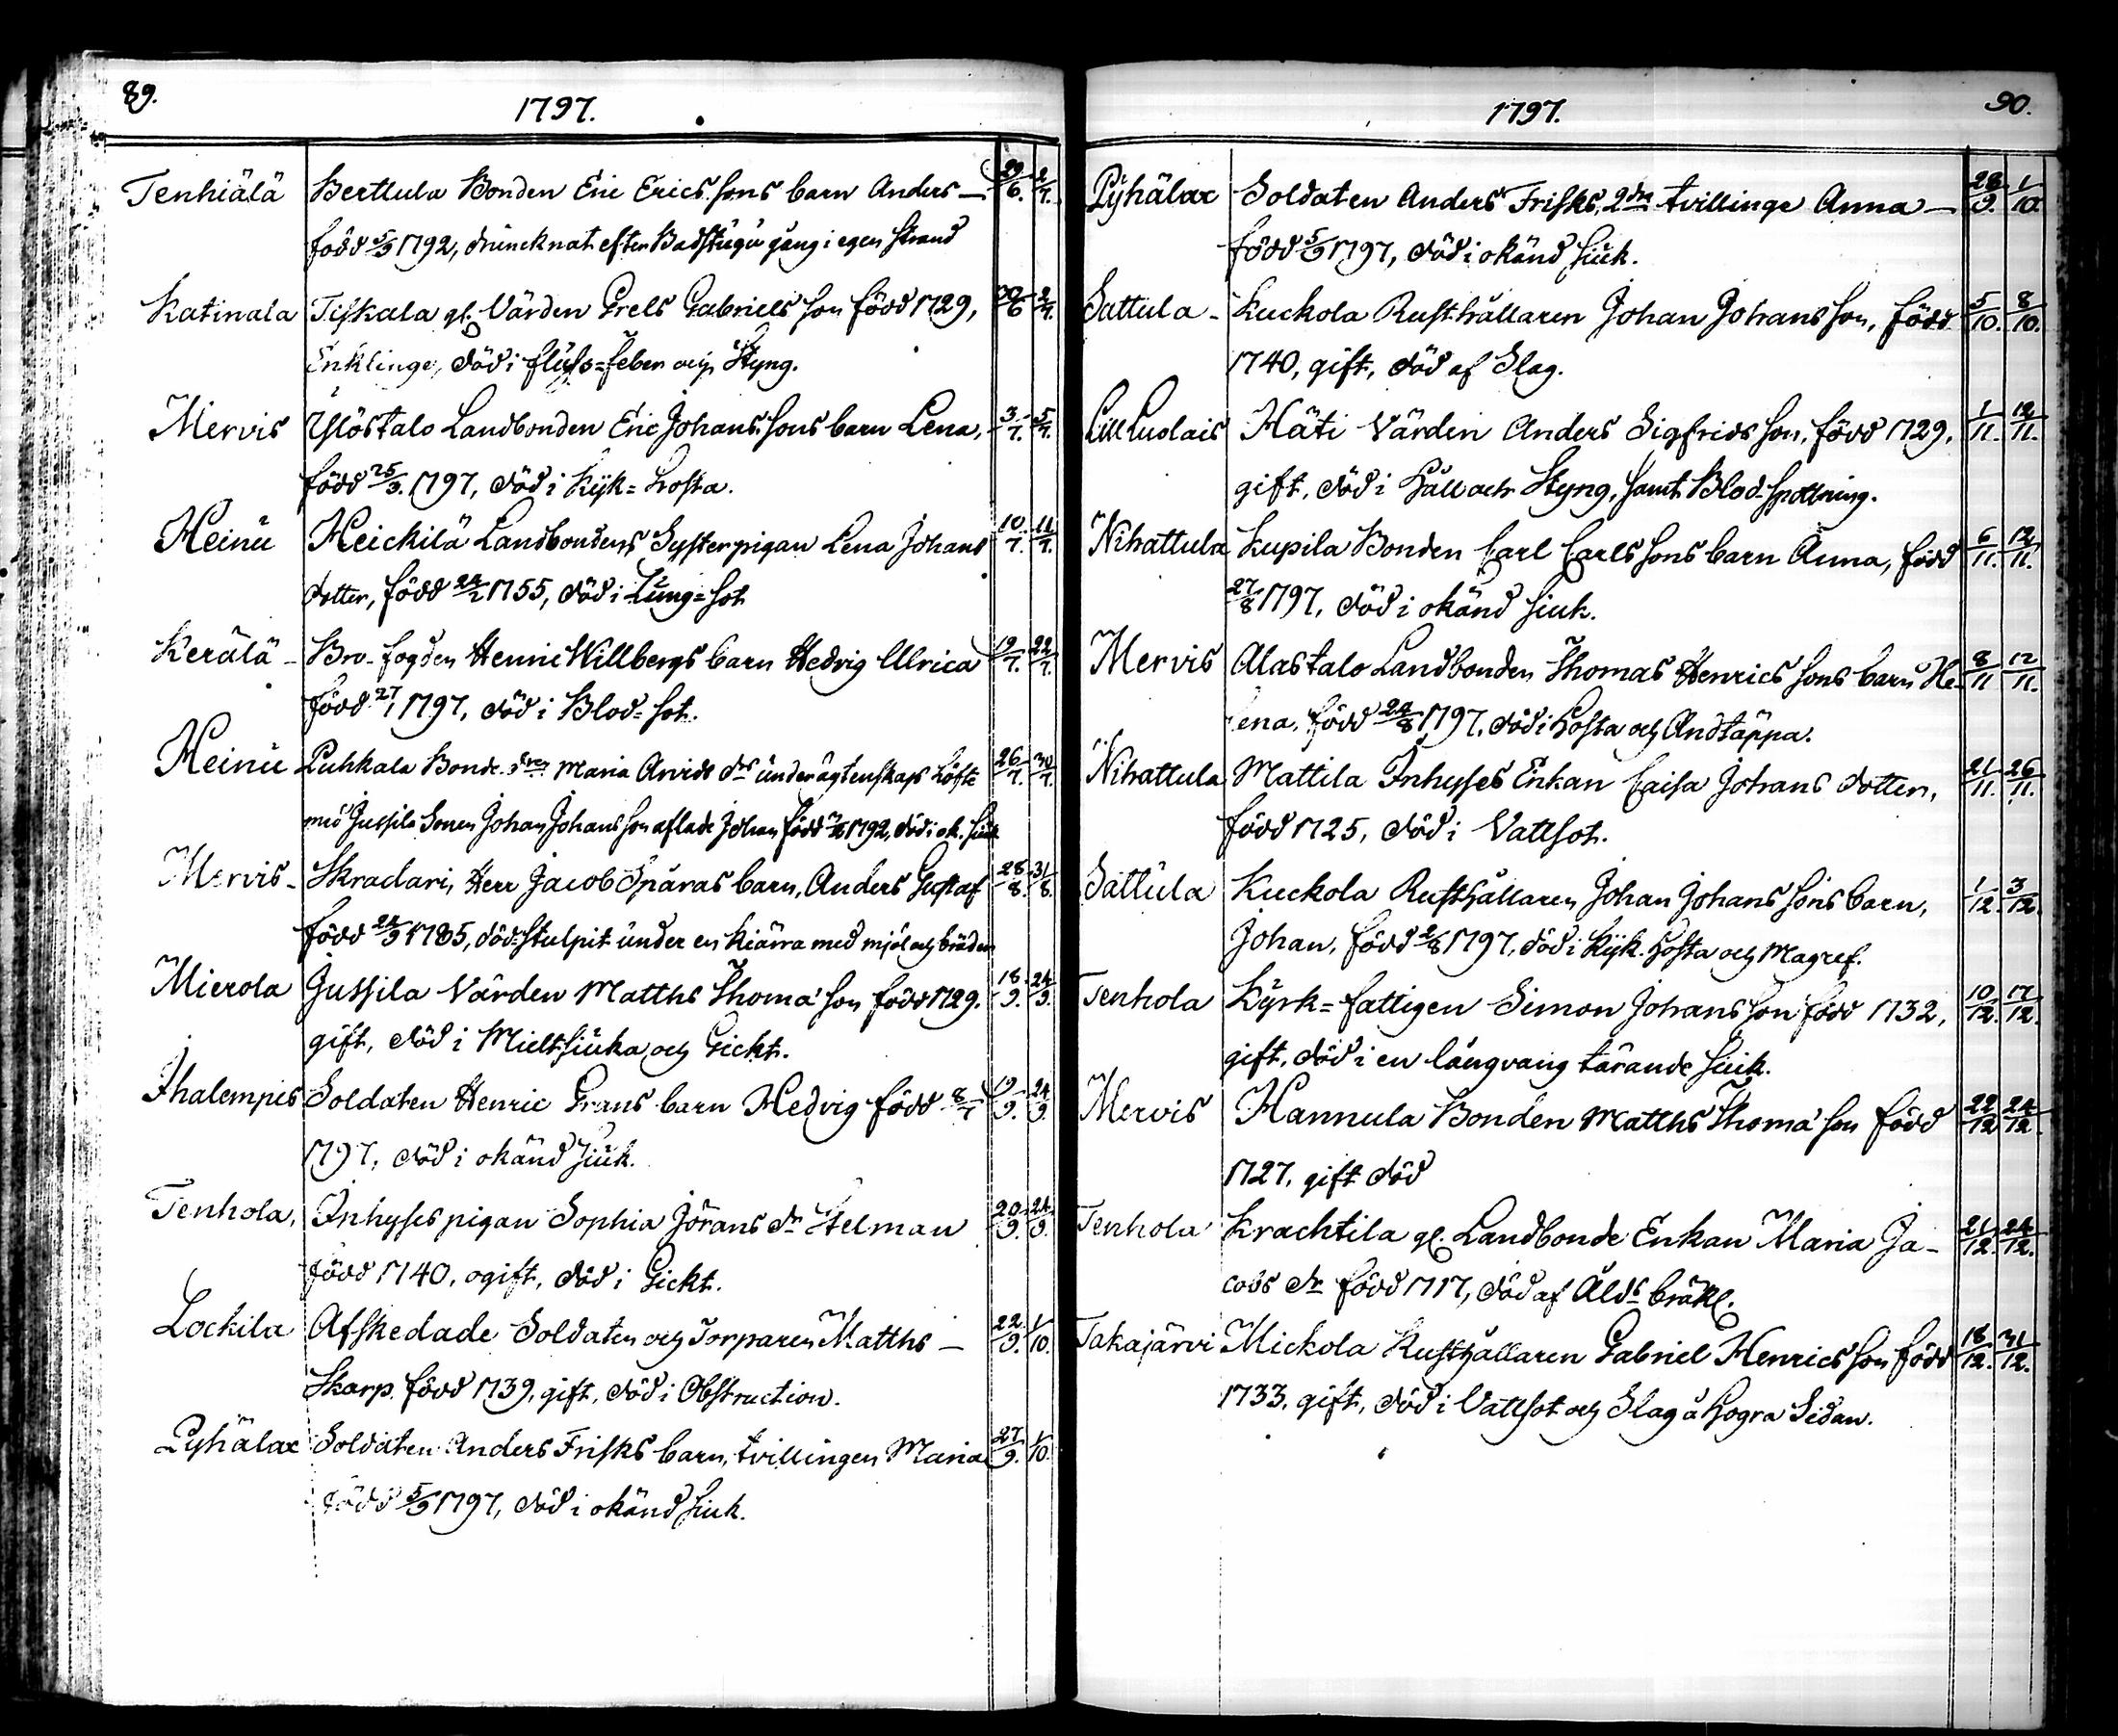 89.
1797.
Tenhiälä Berttula Bonden Eric Erics sons barn Anders — 29/6. 2/7.
född 5/9 1792, druncknat efter Badstugu gång i egen strand
Katinala Tiskala gl. Värden Grels Gabriels son född 1729, 30/6 2/7.
Enklinge, död i fluss=feber och Styng.
Mervis Ylöstalo Landbonden Eric Johans sons barn Lena, 3/7. 5/7.
född 25/3. 1797, död i Kyk=hosta.
Heinu Heickilä Landbondens Systerpigan Lena Johans 10/7. 11/7.
dotter, född 24/2 1755, död i Lung=sot
Kerälä – Bro-fogden Henric Willbergs barn Hedvig Ulrica 19/7. 22/7.
född 27/1 1797, död i Blod=sot.
Heinu Puhkala Bonde drn Maria Arvids drs under ägtenskaps löfte 26/7. 30/7.
med Jussila Sonen Johan Johans son aflade Johan född 1792, död i ok. siuk
Mervis – Skradari, Herr Jacob Spåras barn, Anders Gustaf 28/8. 31/8.
född 24/9 1785, död stulpit under en kiärra med mjöl och bräder
Mierola Jussila Värden Matths Thomæ son född 1729. 18/9. 24/9.
gift, död i Mieltsiuka och Gickt.
Ihalempis Soldaten Henric Grans barn Hedvig född 8/7 19/9. 24/9.
1797, död i okänd siuk.
Tenhola, Inhyses pigan Sophia Jörans dr Stelman 20/9. 24/9.
född 1740, ogift, död i Gickt.
Lockila Afskedade Soldaten och Torparen Matths — 22/9. 1/10.
Skarp. född 1739, gift, död i Obstruction.
Pyhälax Soldaten Anders Frisks barn, tvillingen Maria 27/9. 1/10.
född 5/9 1797, död i okänd siuk.
1797. 90.
Pyhälax Soldaten Anders Frisks, 2dra tvillinge Anna — 28/9. 1/10.
född 5/9 1797, död i okänd siuk.
Sattula – Kuckola Rusthållaren Johan Johans son, född 5/10. 8/10.
1740, gift, död af Slag.
Lill Luolais Häti Värden Anders Sigfrids son, född 1729, 1/11. 12/11.
gift, död i Håll och Styng, samt Blod-spottning.
Nihattula Kupila Bonden Carl Carls sons barn Anna, född 6/11. 12/11.
27/8 1797, död i okänd siuk.
Mervis Alastalo Landbonden Thomas Henrics sons barn He- 8/11 12/11.
lena, född 24/8 1797, död i Hosta och Andtäppa.
Nihattula Mattila Inhyses Enkan Caisa Johans dotter, 21/11. 26/11.
född 1725, död i Vattsot.
Sattula Kuckola Rusthållaren Johan Johans sons barn, 1/12. 3/12.
Johan, född 2/8 1797, död i Kyk-hosta och Magref.
Tenhola Kyrk=fattigen Simon Johans son född 1732, 10/12. 17/12.
gift, död i en långvarig tärande siuk.
Mervis Hannula Bonden Matths Thomæ son född 22/12 24/12.
1727, gift död
Tenhola Krachtila gl. Landbonde Enkan Maria Ja- 21/12. 24/12.
cobs dr född 1717, död af Åldrs bräkl.
Takajärvi Mickola Rusthållaren Gabriel Henrics son född 18/12. 31/12.
1733, gift, död i Vattsot och Slag å högra Sidan.